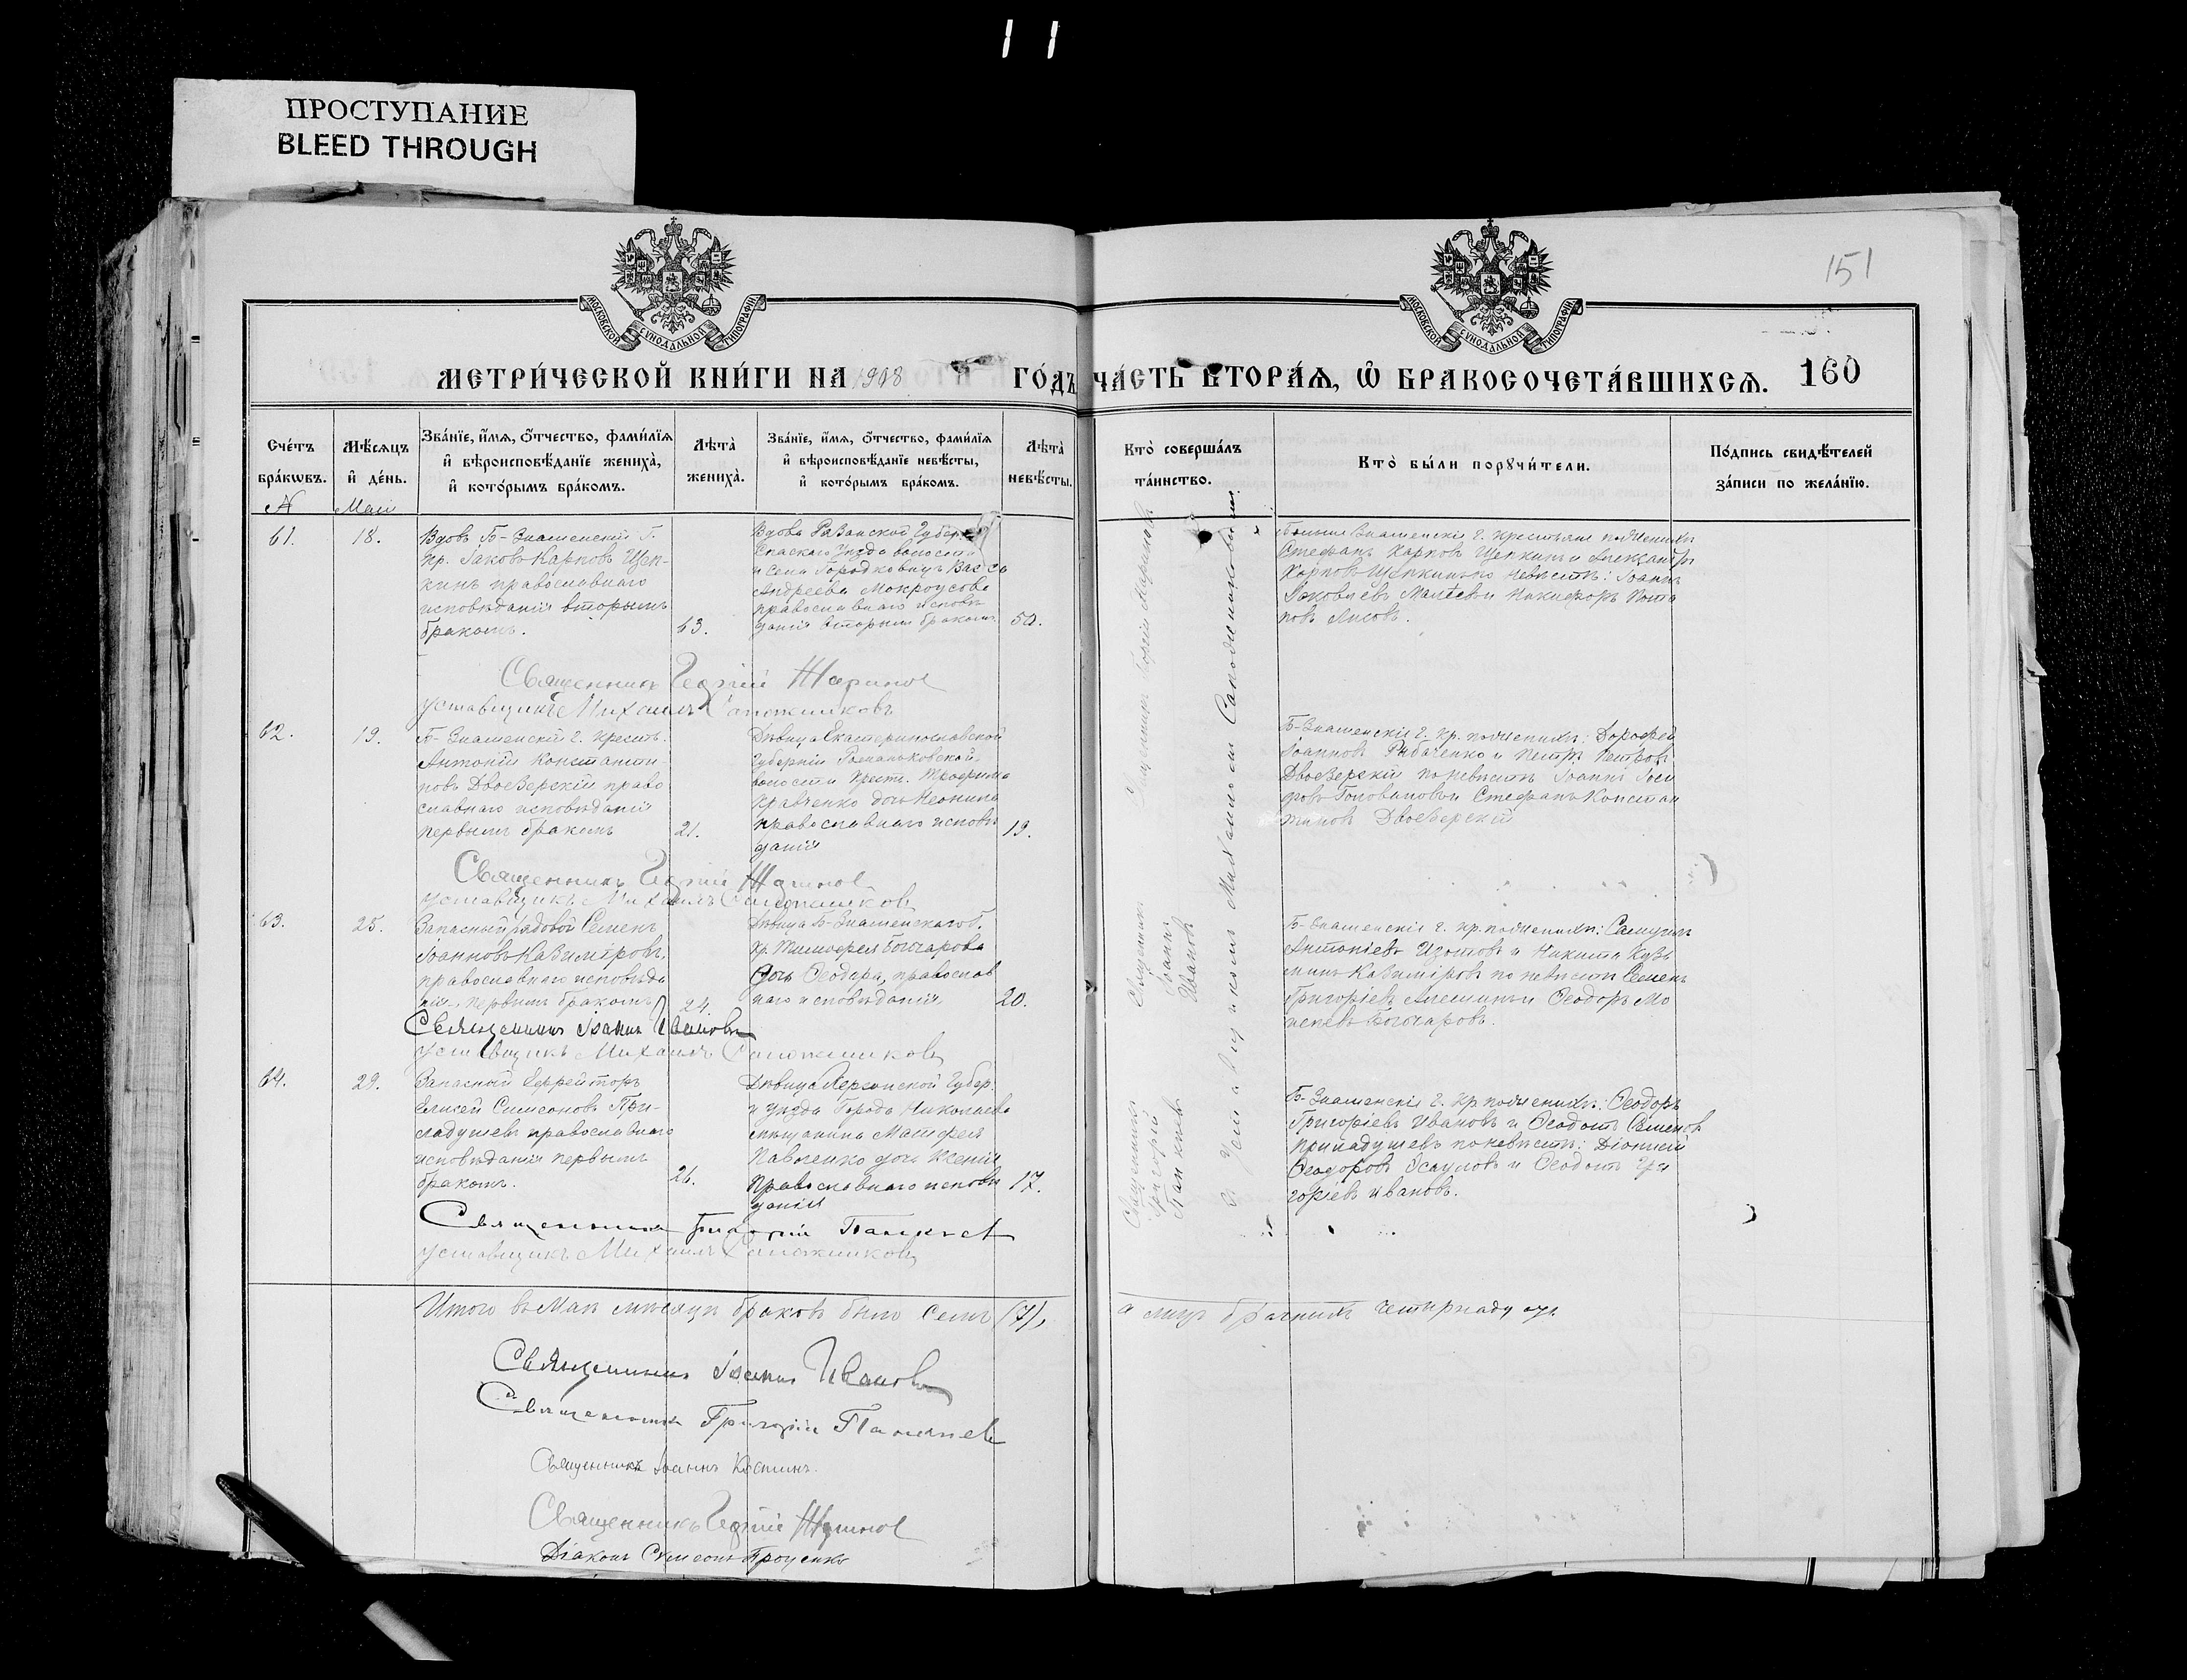 ПРОСТУПАНИЕ
BLEED THROUGH
151
МОСКОВСКОЙ СѴНОДАЛЬНОЙ ТИПОГРАФІИ
МОСКОВСКОЙ СѴНОДАЛЬНОЙ ТИПОГРАФІИ
МЕТРИ́ЧЕСКОЙ КНИ́ГИ НА 1908 ГО́ДЪ ЧА́СТЬ ВТОРА́Ѧ, Ѽ БРАКОСОЧЕТА́ВШИХСѦ. 160
Сче́тъ бра́кѡвъ.
Мѣ́сяцъ и҆ де́нь.
Зва́нїе, и҆́мѧ, ѻ҆́тчество, фами́лїѧ и҆ вѣроисповѣ́данїе жениха̀, и҆ кото́рымъ бра́комъ.
Лѣта̀ жениха̀.
Зва́нїе, и҆́мѧ, ѻ҆́тчество, фами́лїѧ и҆ вѣроисповѣ́данїе невѣ́сты, и҆ кото́рымъ бра́комъ.
Лѣта̀ невѣ́сты.
Кто̀ соверша́лъ та́инство.
Кто̀ бы́ли порꙋчи́тели.
По́дпись свидѣ́телей за́писи по жела́нїю.
№ Май
61.
18.
Вдовъ Б-Знаменскій г.
кр. Іаковъ Карповъ Щеп-
кинъ православнаго
исповѣданія вторымъ
бракомъ.
63.
Вдова Рязанской Губерніи
Спаскаго Уѣзда волости
и села Городковичъ Васса
Андреева Мокроусова
православнаго исповѣ
данія вторымъ бракомъ
50.
Священникъ Георгій Мариновъ
Степанъ Карповъ Щепкинъ и Александръ
Карповъ Щепкинъ по невѣстѣ: Іоаннъ
Іаковлевъ и Никифоръ Пота
повъ Лисовъ.
Священникъ Георгій
уставщикъ Михаилъ Сапожниковъ
62.
19.
Б-Знаменскій г. крест.
Антоній Константи
новъ Двоезерскій право
славнаго исповѣданія
первымъ бракомъ
21.
Дѣвица Екатеринославской
Губерніи Романьковской
волости крест. Трофима
Кравченко дочь Неонила
православнаго исповѣ
данія
19.
Б-Знаменскіе г. кр. по женихѣ: Дорофей
Іоанновъ Рябченко и Петръ Петровъ
Двоезерскій по невѣстѣ Іоаннъ Іоси
фовъ Головановъ и Стефанъ Констан
тиновъ Двоезерскій
Священникъ Георгій
уставщикъ Михаилъ Сапожниковъ
63.
25.
Запасный рядовой Семенъ
Іоанновъ Казиміровъ,
православнаго исповѣда
нія, первымъ бракомъ
24.
Дѣвица Б-Знаменскаго г.
кр. Тимофея Бочарова
дочь Ѳеодора, православ
наго исповѣданія
20.
Священникъ
Іоаннъ
Ивановъ
Б-Знаменскіе г. кр. по женихѣ: Самуилъ
Антоніевъ Изотовъ и Никита Кузь
минъ Казиміровъ по невѣстѣ Семенъ
Григоріевъ Алешинъ и Ѳеодоръ Мо
исеевъ Бочаровъ.
Священникъ Іоаннъ Ивановъ
уставщикъ Михаилъ Сапожниковъ
64.
29.
Запасный Ефрейторъ
Елисей Симеоновъ При-
ладушевъ православнаго
исповѣданія первымъ
бракомъ.
26.
Дѣвица Херсонской Губер.
и уѣзда города Николаева
мѣщанина Матфея
Павленко дочь Ксенія
православнаго исповѣ
данія
17.
Священникъ
Григорій
Б-Знаменскіе г. кр. по женихѣ: Ѳеодоръ
Григоріевъ Ивановъ и Ѳеодотъ Семенов
Приладушевъ по невѣстѣ: Діонисій
Ѳеодоровъ Есауловъ и Ѳеодотъ Гри
горіевъ Ивановъ.
Священникъ Григорій
уставщикъ Михаилъ Сапожниковъ
съ уставщикомъ Михаиломъ Сапожниковымъ
Итого въ Маѣ мѣсяцѣ браковъ было семь (7), а лицъ брачныхъ четырнадцать
Священникъ Іоаннъ Ивановъ
Священникъ Григорій
Священникъ Іоаннъ
Священникъ Георгій
Діаконъ Симеонъ Проценко